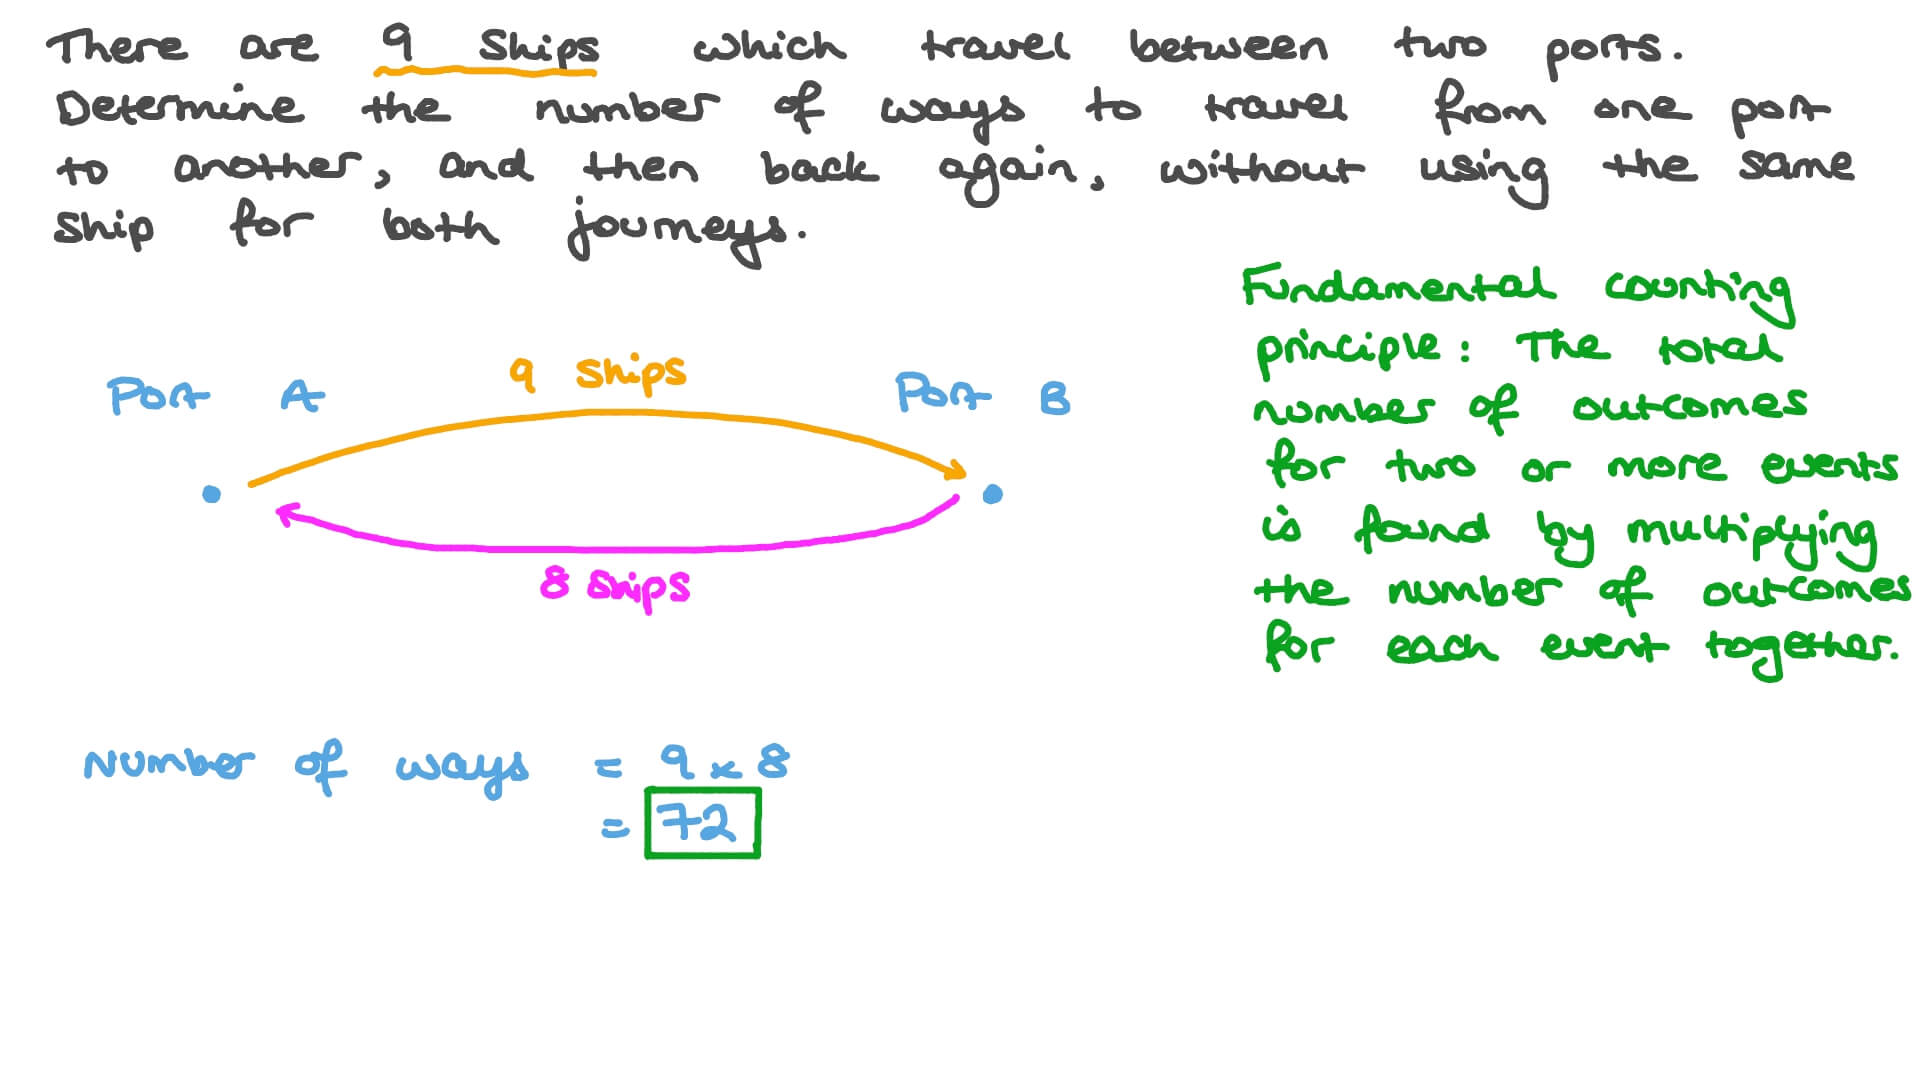 There are 9 ships which travel between two ports.
Determine the number of ways to travel from one port
to another, and then back again, without using the same
ship for both journeys.
Fundamental counting
principle: The total
number of outcomes
for two or more events
is found by multiplying
the number of outcomes
for each event together.
9 ships
Port A
Port B
8 ships
Number of ways = 9 × 8
= 72